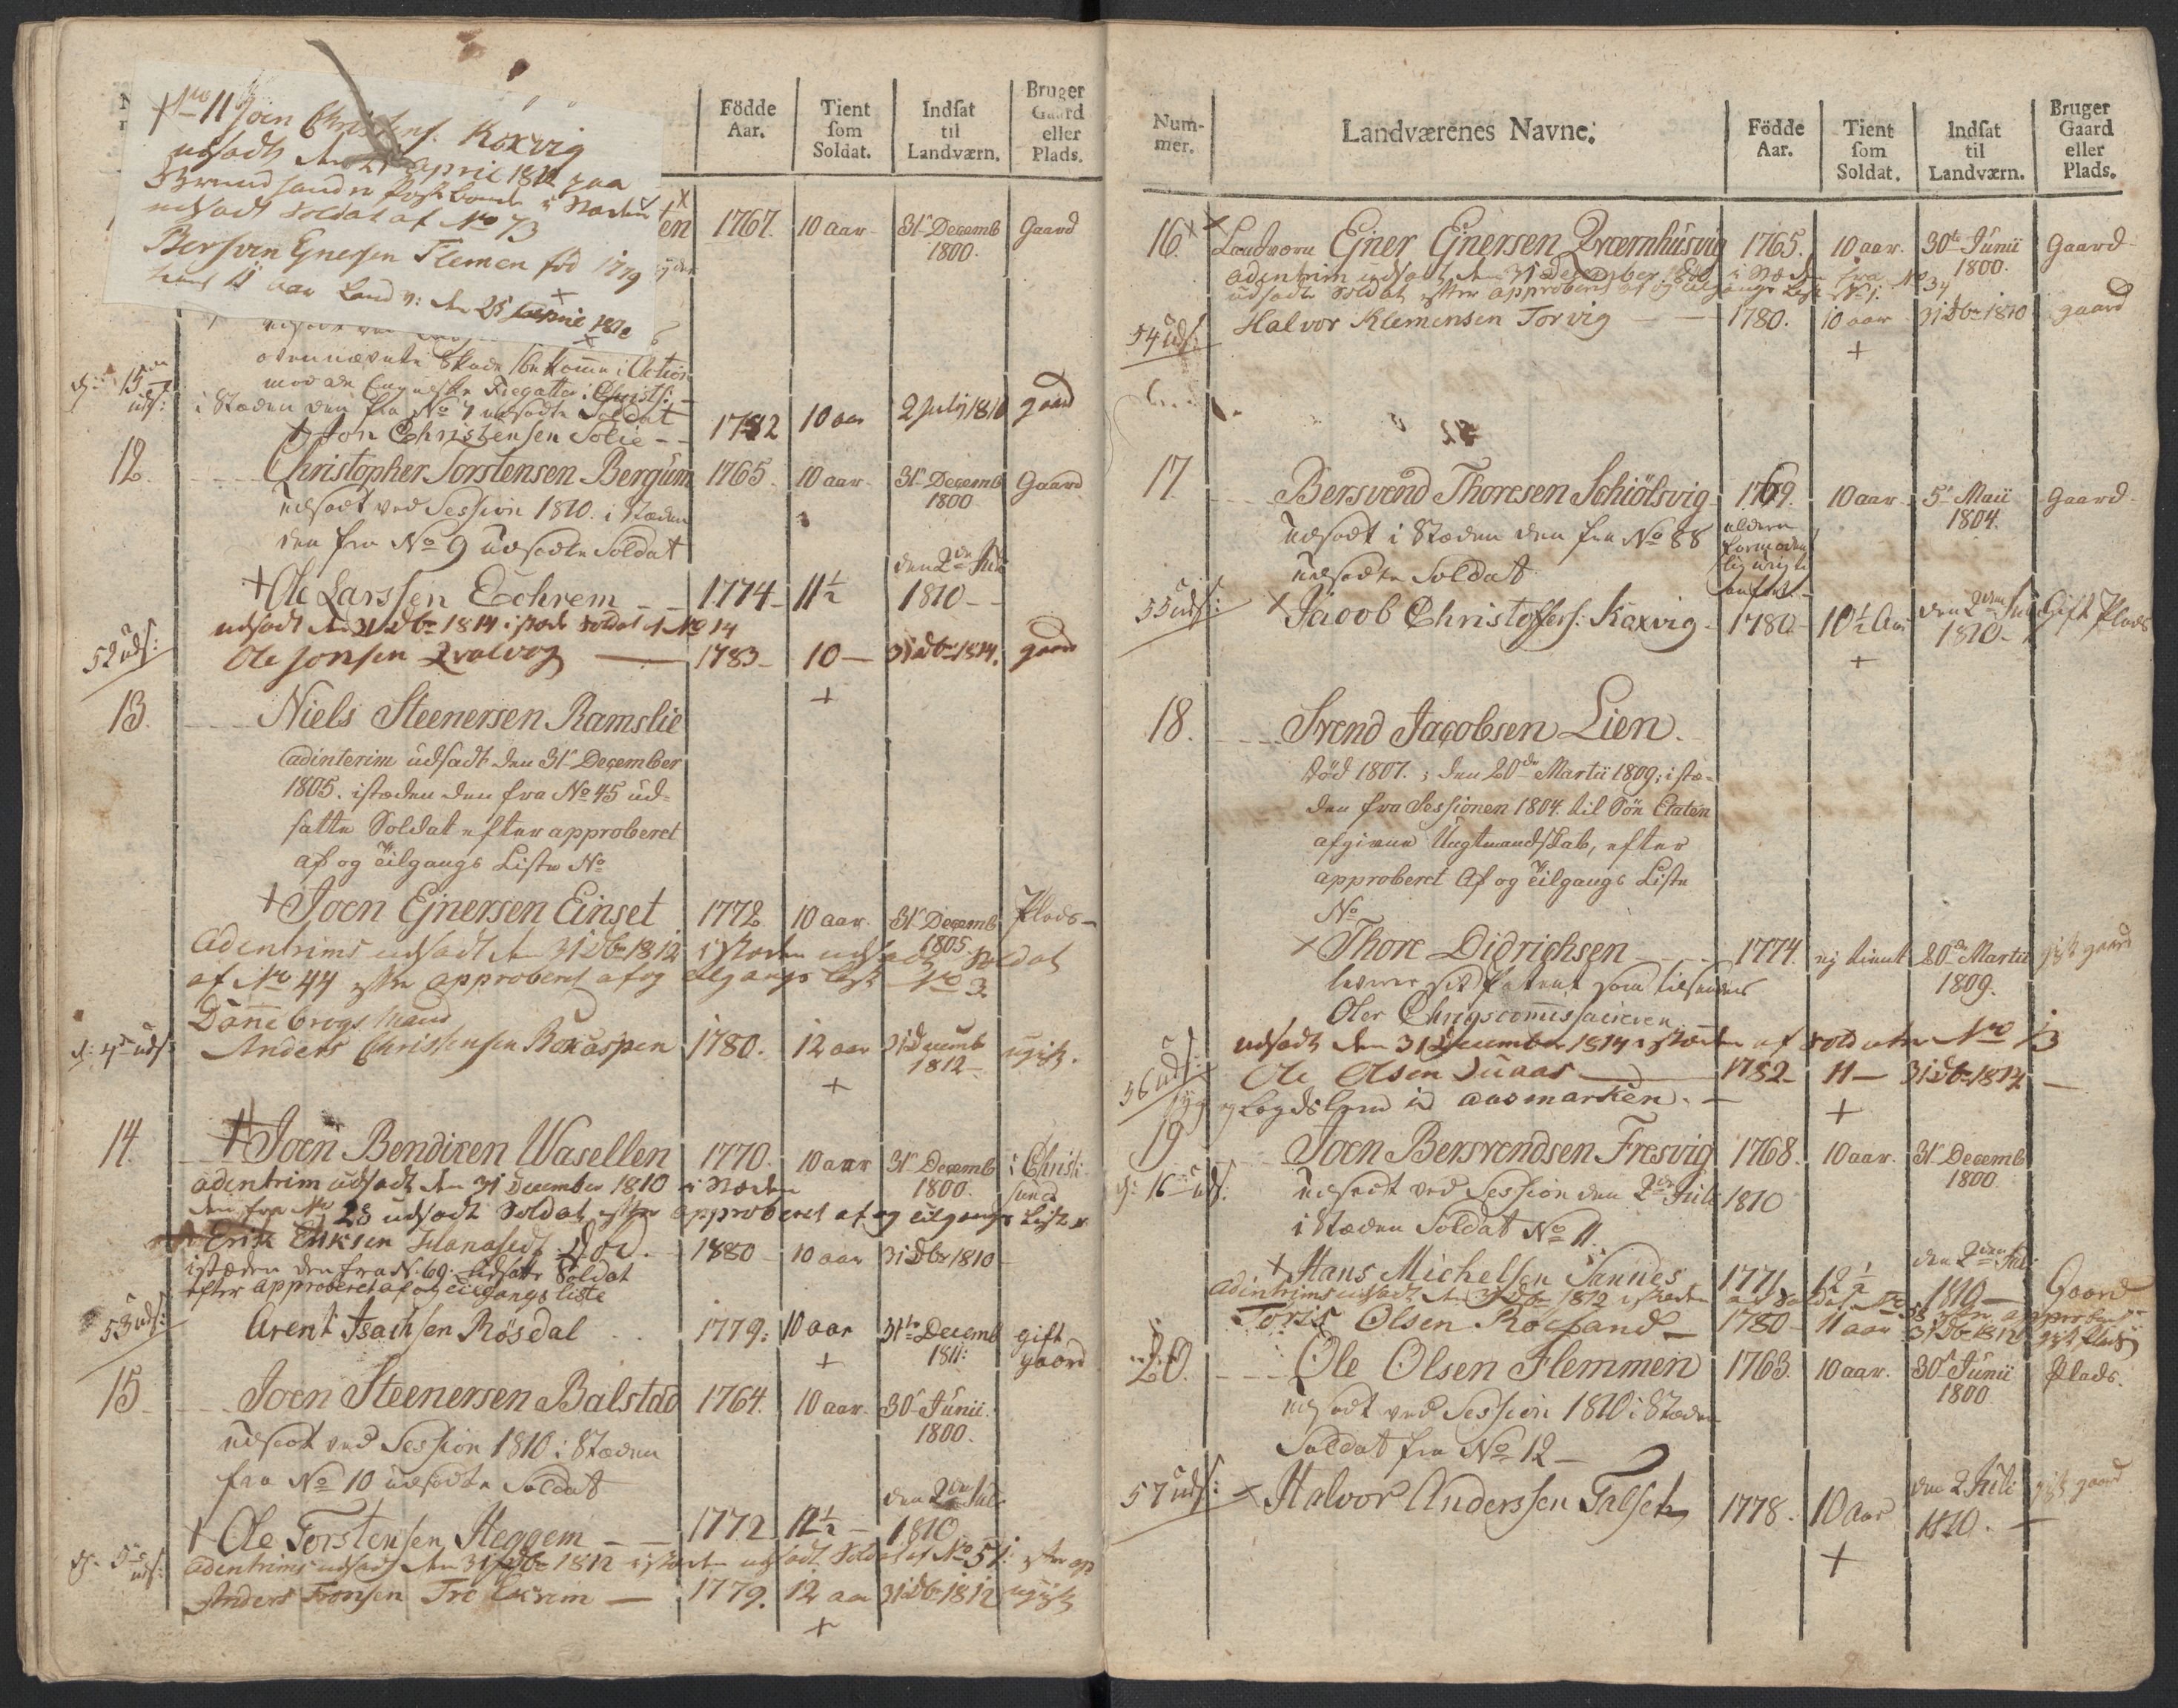 No 11 Joen Christens. Kaxvig
udsadt den 25 April 1812 paa
udsadt Soldat af No 73
Bersven Ejnersen Flemen fød 1779
tient 11 aar Land v: den 25 April 1812
Födde Aar.
Tient som Soldat.
Indsat til Landværn.
Bruger Gaard eller Plads.
en 1767. 10 aar 31 Decemb 1800. Gaard
ovennævnte Skade bekomme i Action
mod de Engelske Fregatter i Christs:
15 uds:
i Stæden den fra No 7 udsadte Soldat
+ Jon Christensen Solie -- 1782 10 aar 2 July 1810 gaard
12. Christopher Torstensen Bergum 1765. 10 aar. 31 Decemb 1800 Gaard
Udsadt ved Session 1810. i Stæden
den fra No 9 Udsadte Soldat
+ Ole Larssen Echrem -- 1774 11½ den 2den Juli 1810 --
udsadt den 31 Dbr 1814 i stæden Soldat af No 14
52 uds:
Ole Jonsen Qvalvog — 1783 - 10 — 31 Dbr 1814. gaard
+
13. Niels Steenersen Ramslie
adinterim udsadt den 31 December
1805. istæden den fra No 45 ud=
satte Soldat efter approberet
af og tilgangs Liste No
+ Joen Ejnersen Einset 1772 10 aar. 31 Decemb 1805. Plads -
Adentrims udsadt den 31 Dbr 1812 i Stæden udsadt Soldat
af No 44 efter approberet af og tilgangs List No 3
Dannebrogs Mand
Anders Christensen Boxaspen 1780. 12 aar 31 Decemb 1812 - ugift.
+
14. + Joen Bendixen Wasellen 1770. 10 aar 31 Decemb 1800. i Christi sund
adentrim udsadt den 31 December 1810 i Stæden
den fra No 28 udsadt Soldat efter approberet af og tilgangs Liste
Erik Eriksen død. 1880 - 10 aar 31 Dbr 1810 -
istæden den fra N. 69. Udsatte Soldat
efter approberet af og tilgangs liste
53 uds:
Arent Isachsen Rösdal 1779: 10 aar 31te Decemb 1811: gift gaard
+
15 Joen Steenersen Balstad 1764. 10 aar 30 Junii 1800.
Udsadt ved Session 1810 i Stæden
fra No 10 udsadte Soldat
+ Ole Torstensen Heggem -- 1772 12½ - den 2den Juli 1810
adentrims udsadt den 31 Dbr 1812 i stæden udsadt Soldat af No 51: efter ap
Anders Tronsen Tro Ekrem — 1779. 12 aar 31 Dbr 1812 ugift
+
Num-mer.
Landværenes Navne.
Födde Aar.
Tient som Soldat.
Indsat til Landværn.
Bruger Gaard eller Plads.
16 + Landværn Ejner Ejnersen Qværnhusvig 1765. 10 aar. 30te Junii 1800. Gaard
adentrim udsadt den 31 December 1810 i Stæden fra No 34
udsadte Soldat efter approberet af og tilgangs List No 1.
54 uds:
Halvor Klemensen Torvig — 1780. 10 aar 31 Dbr 1810 gaard
+
17 Bersvend Thoresen Schiölsvig 1769. 10 aar. 5 Maii 1804. Gaard.
Udsadt i Stæden den fra No 88
udsadte Soldat
alderen formodentlig urigtig anført
55 uds:
+ Jacob Christoffers: Kaxvig - 1780 10½ Aar den 2den Juli 1810 - Gift Plads
+
18. Svend Jacobsen Lien.
død 1807. ; den 20de Martii 1809; istæ=
den fra Sessionen 1804. til Söe Etaten
afgivne Ungtmandskab, efter
approberet Af og tilgangs Liste
No
+ Thore Didrichsen -- 1774. ej tient 20de Martii 1809. gift gaard
leverer sit Patent som tilsendes
Over Chrigscommissairen
udsadt den 31 December 1814 i stæden af Soldaten No 13
56 uds:
Ole Olsen Duaas — 1782 - 11 — 31 Dbr 1814 —
Lægdslem i Aasmarken. —
+
19 Joen Bersvendsen Fresvig 1768. 10 aar. 31 Decemb 1800
Udsadt ved Session den 2den Juli 1810
i Stæden Soldat No 11.
+ Hans Michelsen Sannes 1771 12½ den 2den Juli 1810 — Gaard
Adintrims udsadt den 31 Dbr 1812 i stæden af Soldat No 58 efter approberet
Toris Olsen Roesand — 1780 - 11 aar 31 Dbr 1812 gift Plads
20. Ole Olsen Flemmen 1763. 10 aar. 30 Junii 1800 Plads.
udsadt ved Session 1810 i Stæden
Soldat fra No 12 —
57 uds:
+ Halvor Anderssen Talset 1778. 10 Aar den 2 Juli 1810. — gift gaard
+